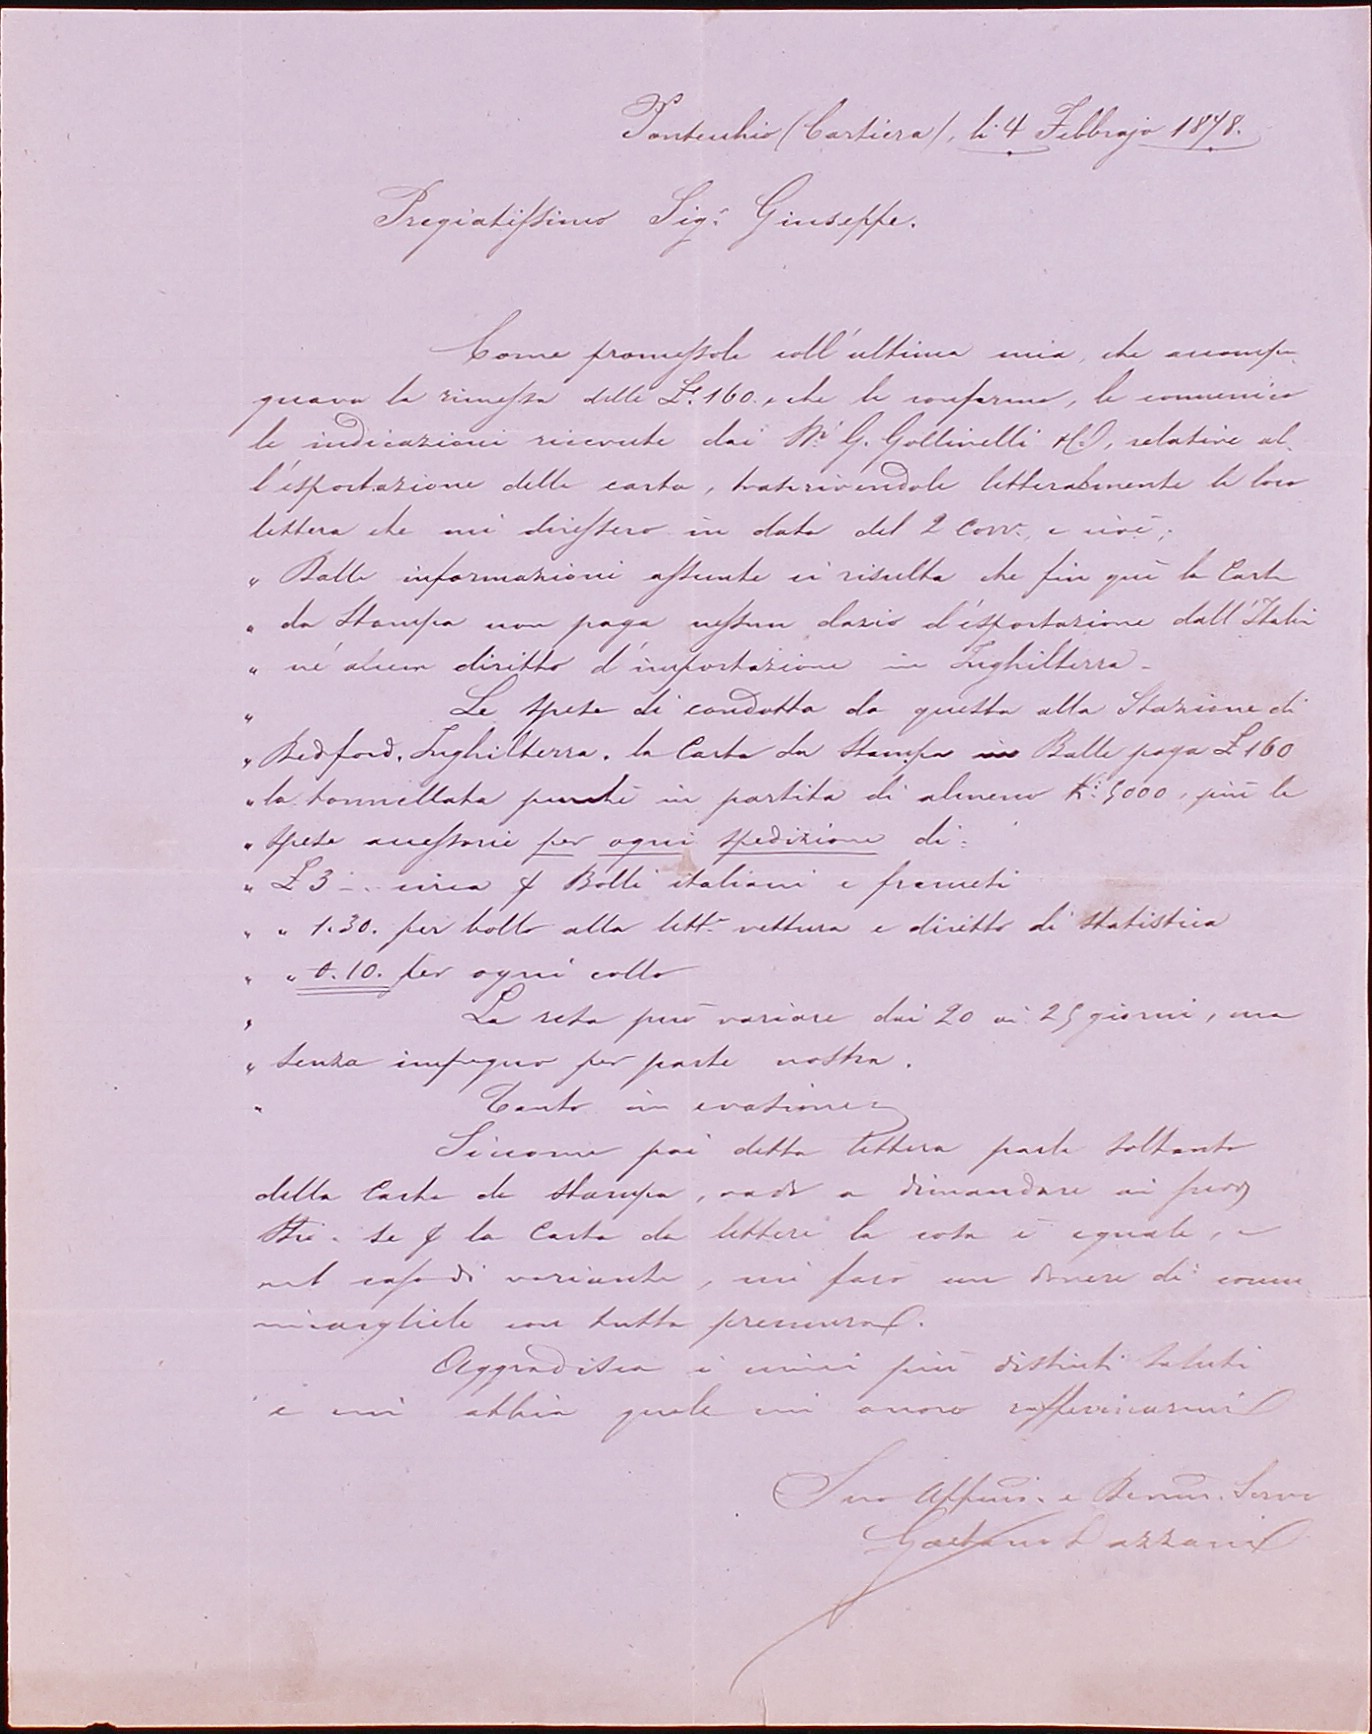 Pontecchio (Cartiera), li 4 Febbrajo 1878.
Pregiatissimo Sigr. Giuseppe.
Come promessole coll'ultima mia, che accompa-
gnava la rimessa delle L. 160., che le confermo, le comunico
le indicazioni ricevute dai G. Gollinelli relative al-
l'esportazione della carta, trascrivendole letteralmente la loro
lettera che mi diressero in data del 2 Corr., e cioè;
" Dalle informazioni assunte ci risulta che fin quì la Carta
" da Stampa non paga nessun dazio d'esportazione dall'Italia
" nè alcun diritto d'importazione in Inghilterra -
" Le spese di condotta da questa alla Stazione di
" Bedford. Inghilterra. la Carta da Stampa in Balle paga £ 160
" la tonnellata purchè in partita di almeno K. 5000, più le
" spese accessorie per ogni spedizione di:
" £ 3 -. circa p Bolli italiani e francesi
" " 1.30. per bollo alla lett. vettura e diritto di statistica
" " 0.10. per ogni collo
" La resa può variare dai 20 ai 25 giorni, ma
" senza impegno per parte nostra.
" Tanto in evasione
Siccome poi detta lettera parla soltanto
della Carta da Stampa, vado a dimandare ai
se p la Carta da lettere la cosa è eguale, e
nel caso di variante, mi farò un dovere di comu
nicargliele con tutta premura.
Aggradisca i miei più distinti saluti
e mi abbia quale mi onoro raffermarmi
Suo Affmo. e Devmo. Servo
Gaetano Dazzani